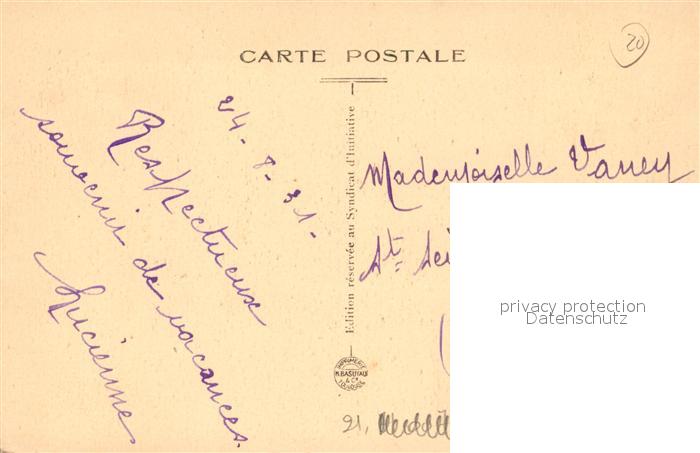 20
CARTE POSTALE
24-8-31-
Respectueux
souvenir de vacances
Lucienne
Edition réservée au Syndicat d'Initiative
IMPRIMERIE
& Cie
TOULOUSE
Mademoiselle Vanney
Ste Sei
21,
privacy protection
Datenschutz